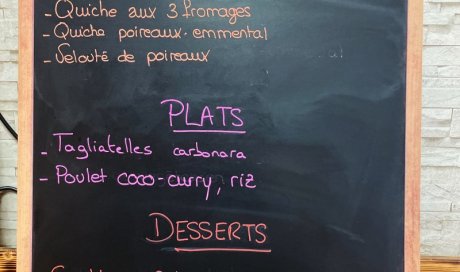 - Quiche aux 3 fromages
- Quiche poireaux-emmental
- Velouté de poireaux
PLATS
- Tagliatelles carbonara
- Poulet coco-curry, riz
DESSERTS